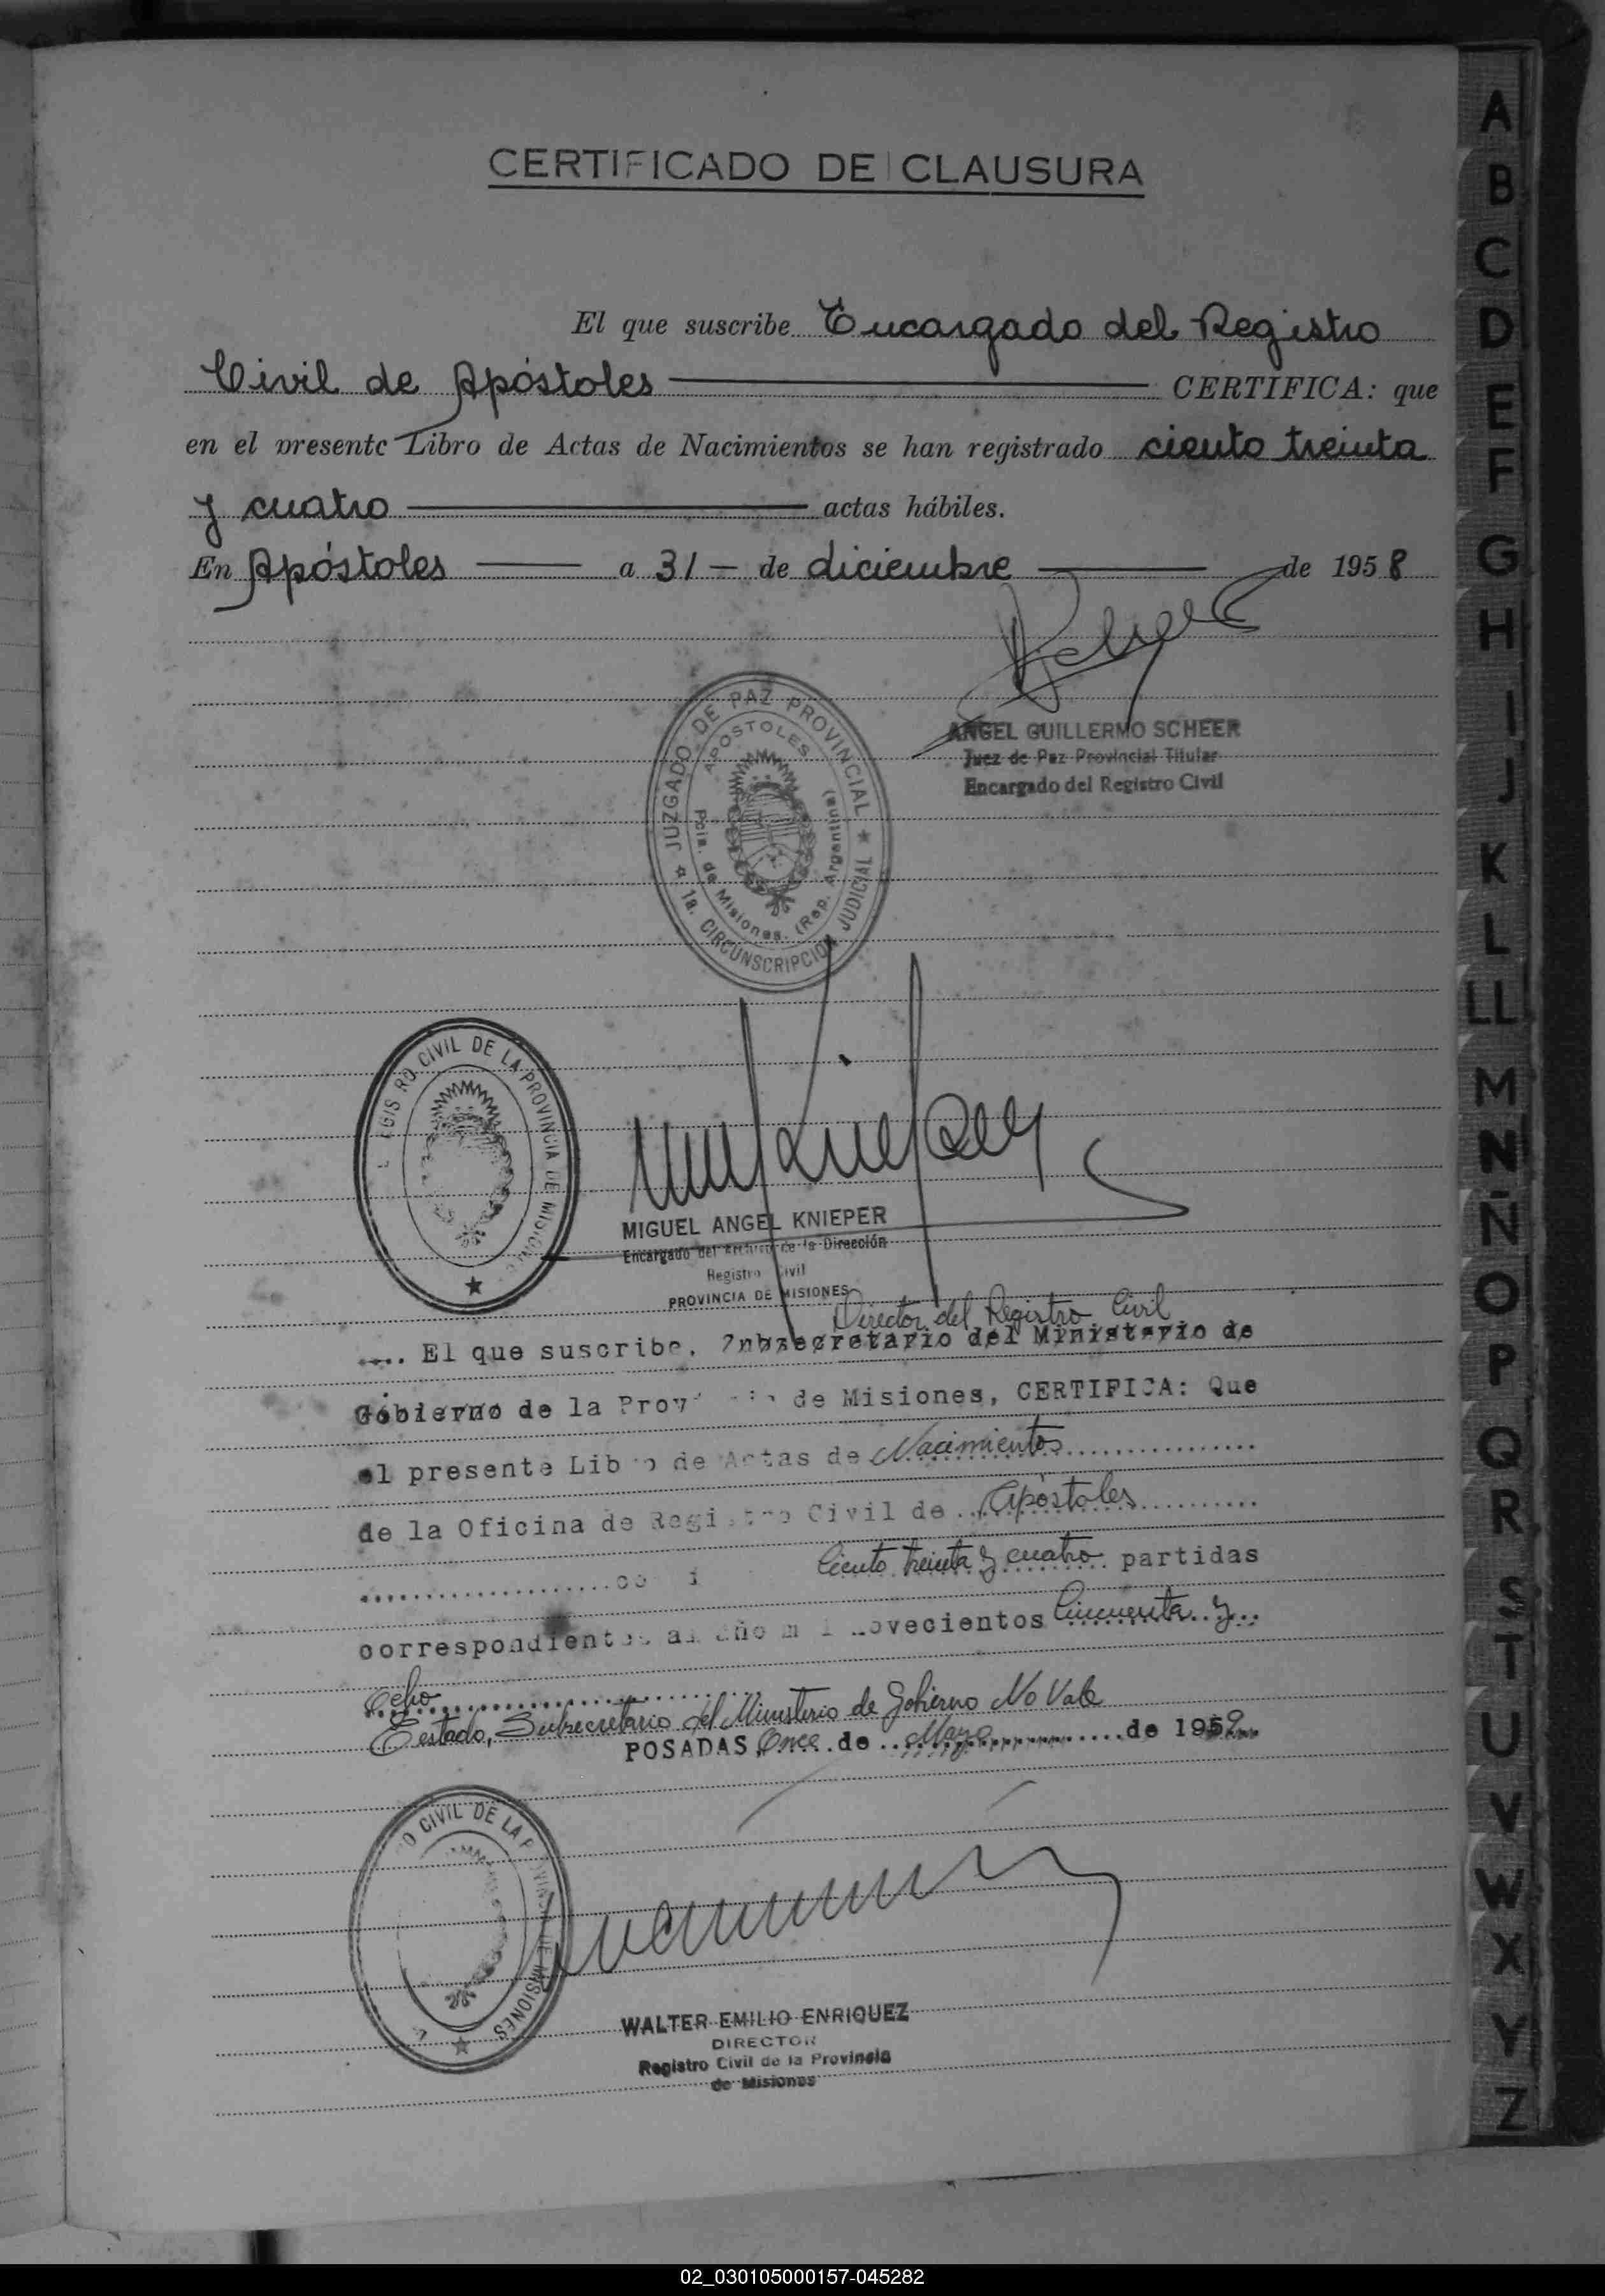 CERTIFICADO DE CLAUSURA
El que suscribe Encargado del Registro
Civil de Apóstoles CERTIFICA: que
en el presente Libro de Actas de Nacimientos se han registrado ciento treinta
y cuatro actas hábiles.
En Apóstoles a 31 - de diciembre de 1958
ANGEL GUILLERMO SCHEER
Juez de Paz Provincial Titular
Encargado del Registro Civil
JUZGADO DE PAZ PROVINCIAL ★ 1a. CIRCUNSCRIPCION JUDICIAL ★
APOSTOLES
Pcia. de Misiones. (Rep. Argentina)
EGIS RO CIVIL DE LA PROVINCIA DE MISION
MIGUEL ANGEL KNIEPER
Encargado del Archivo de la Dirección
Registro Civil
PROVINCIA DE MISIONES
Director del Registro Civil
.... El que suscribe, Subsecretario del Ministerio de
Gobierno de la Prov de Misiones, CERTIFICA: Que
el presente Libro de Actas de Nacimientos
de la Oficina de Registro Civil de Apóstoles
Ciento treinta y cuatro partidas
correspondientes al año mil novecientos Cincuenta y
Ocho
Estado, Subsecretario del Ministerio de Gobierno No Vale
POSADAS, Once de Mayo de 1959
O CIVIL DE LA P VINCIA DE MISIONES
WALTER EMILIO ENRIQUEZ
DIRECTOR
Registro Civil de la Provincia
de Misiones
A
B
C
D
E
F
G
H
I
J
K
L
LL
M
N
Ñ
O
P
Q
R
S
T
U
V
W
X
Y
Z
02_030105000157-045282